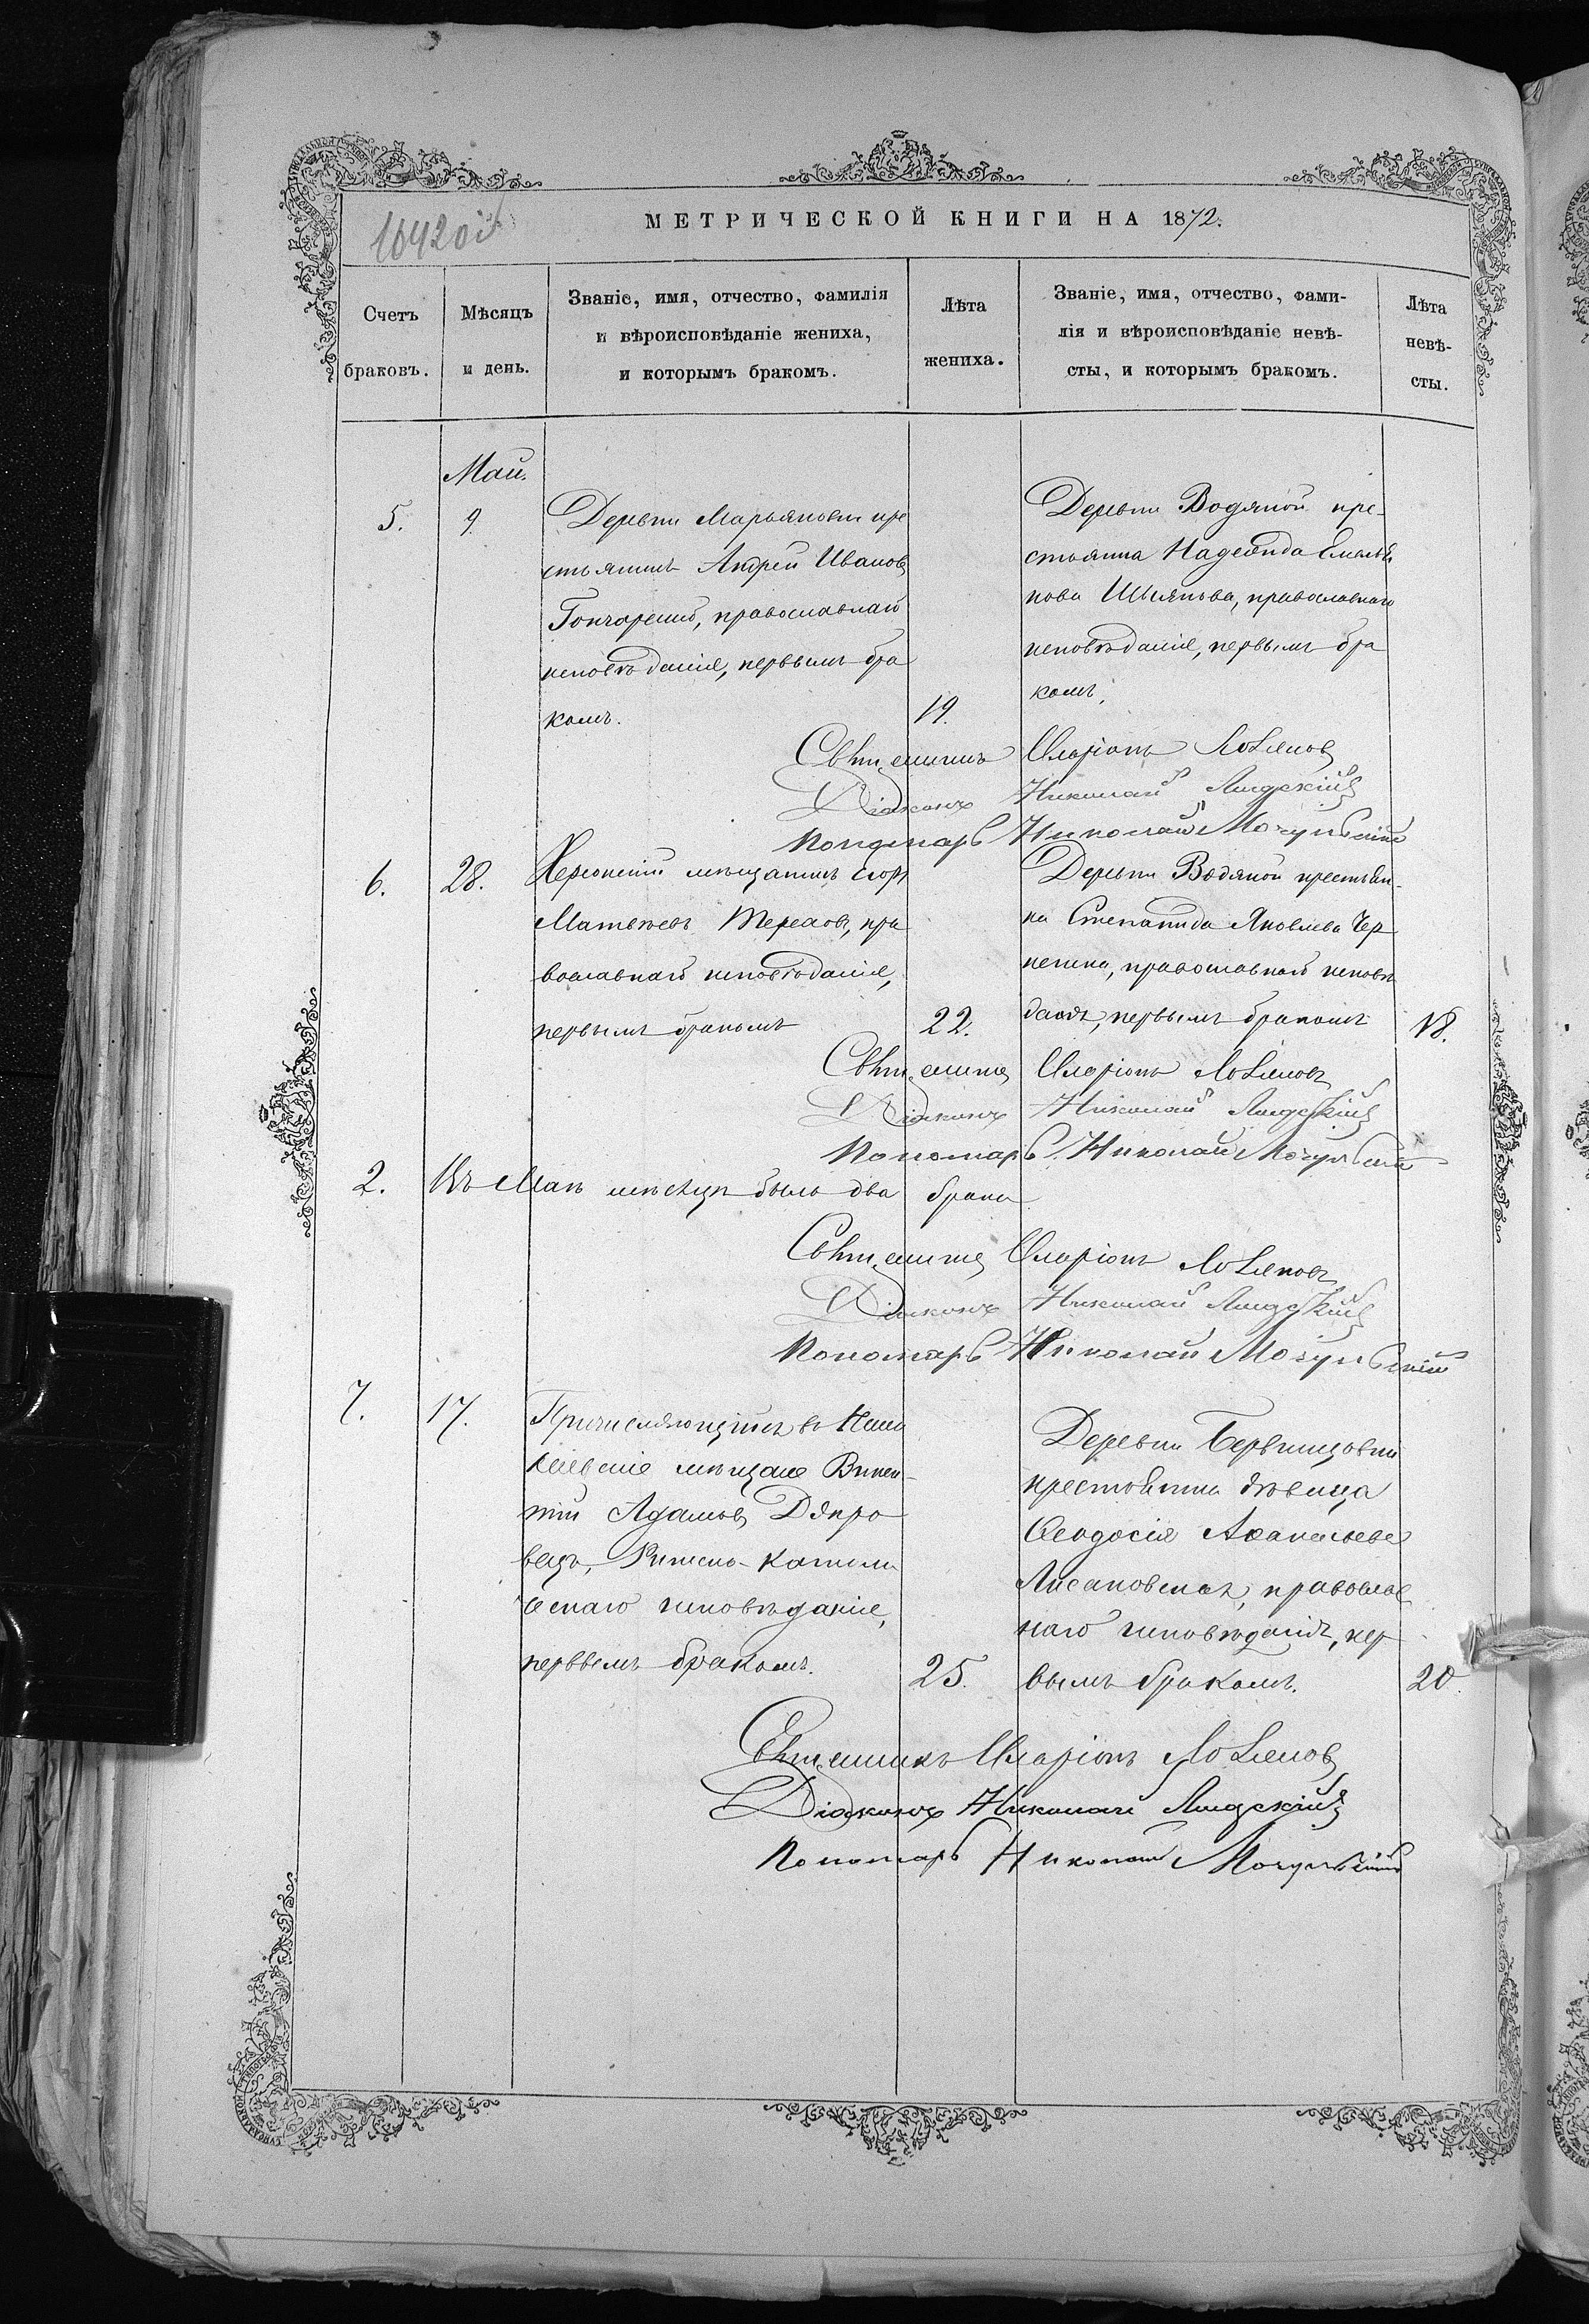 МЕТРИЧЕСКОЙ КНИГИ НА 1872.
Счетъ
браковъ.
Мѣсяцъ
и день.
Званіе, имя, отчество, фамилія
и вѣроисповѣданіе жениха,
и которымъ бракомъ.
Лѣта
жениха.
Званіе, имя, отчество, фами-
лія и вѣроисповѣданіе невѣ-
сты, и которымъ бракомъ.
Лѣта
невѣ-
сты.
Май.
5.
9.
Деревни Марьяновки кре
стьянинъ Андрей Ивановъ
православнаго
исповѣданія, первымъ бра
комъ.
19.
Деревни Водяной кре-
стьянка Надежда Емелья
нова православнаго
исповѣданія, первымъ бра
комъ.
Священникъ Иларіонъ
Діаконъ Николай
Пономарь Николай
6.
28.
Херсонскій мѣщанинъ
Матвѣевъ Тереховъ, пра
вославнаго исповѣданія,
первымъ бракомъ
22.
Деревни Водяной крестьян-
ка Степанида Яковлева
православнаго исповѣ
данія, первымъ бракомъ
18.
Священникъ Иларіонъ
Діаконъ Николай
Пономарь Николай
2.
Въ Маѣ мѣсяцѣ было два брака
Священникъ Иларіонъ
Діаконъ Николай
Пономарь Николай
7.
17.
Причисляющійся въ
мѣщане Викен-
тій Адамовъ
Римско-католи
ческаго исповѣданія,
первымъ бракомъ.
25.
Деревни
крестьянка дѣвица
Ѳеодосія Аѳанасьева
Лисановская, православ
наго исповѣданія, пер
вымъ бракомъ.
20.
Священникъ Иларіонъ
Діаконъ Николай
Пономарь Николай